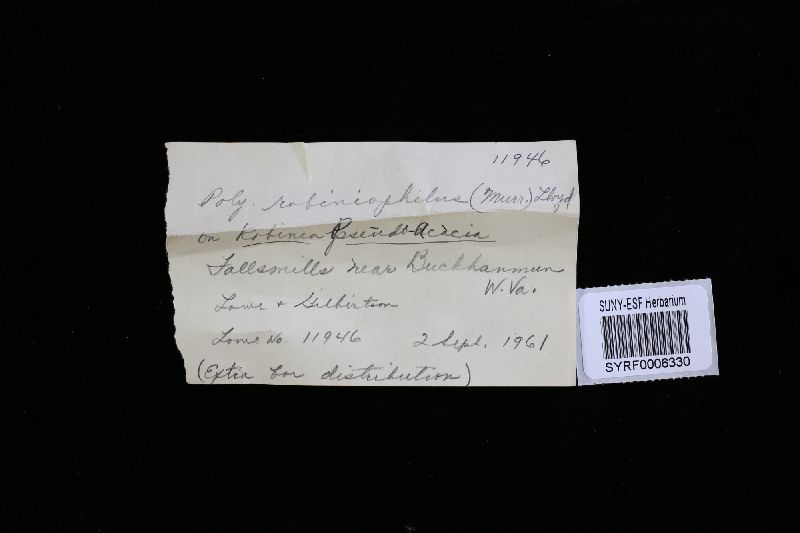 11946
Poly. robiniophilus (Murr.) Lloyd
on Robinia Pseudo-Acacia
Fallsmills near Buckhannun
W. Va.
Lowe + Gilbertson
Lowe No. 11946 2 Sept. 1961
(Extra for distribution)
SUNY-ESF Herbarium
SYRF0006330